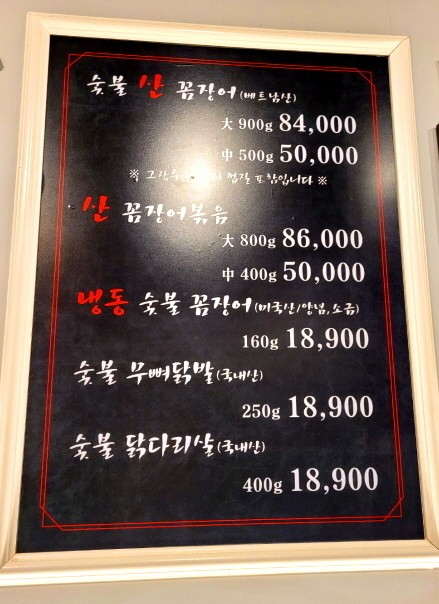 숯불 산 꼼장어 (베트남산)
大 900g 84,000
中 500g 50,000
※ 그람수 껍질 포함입니다 ※
산 꼼장어볶음
大 800g 86,000
中 400g 50,000
냉동 숯불 꼼장어 (미국산/양념,소금)
160g 18,900
숯불 무뼈닭발 (국내산)
250g 18,900
숯불 닭다리살 (국내산)
400g 18,900